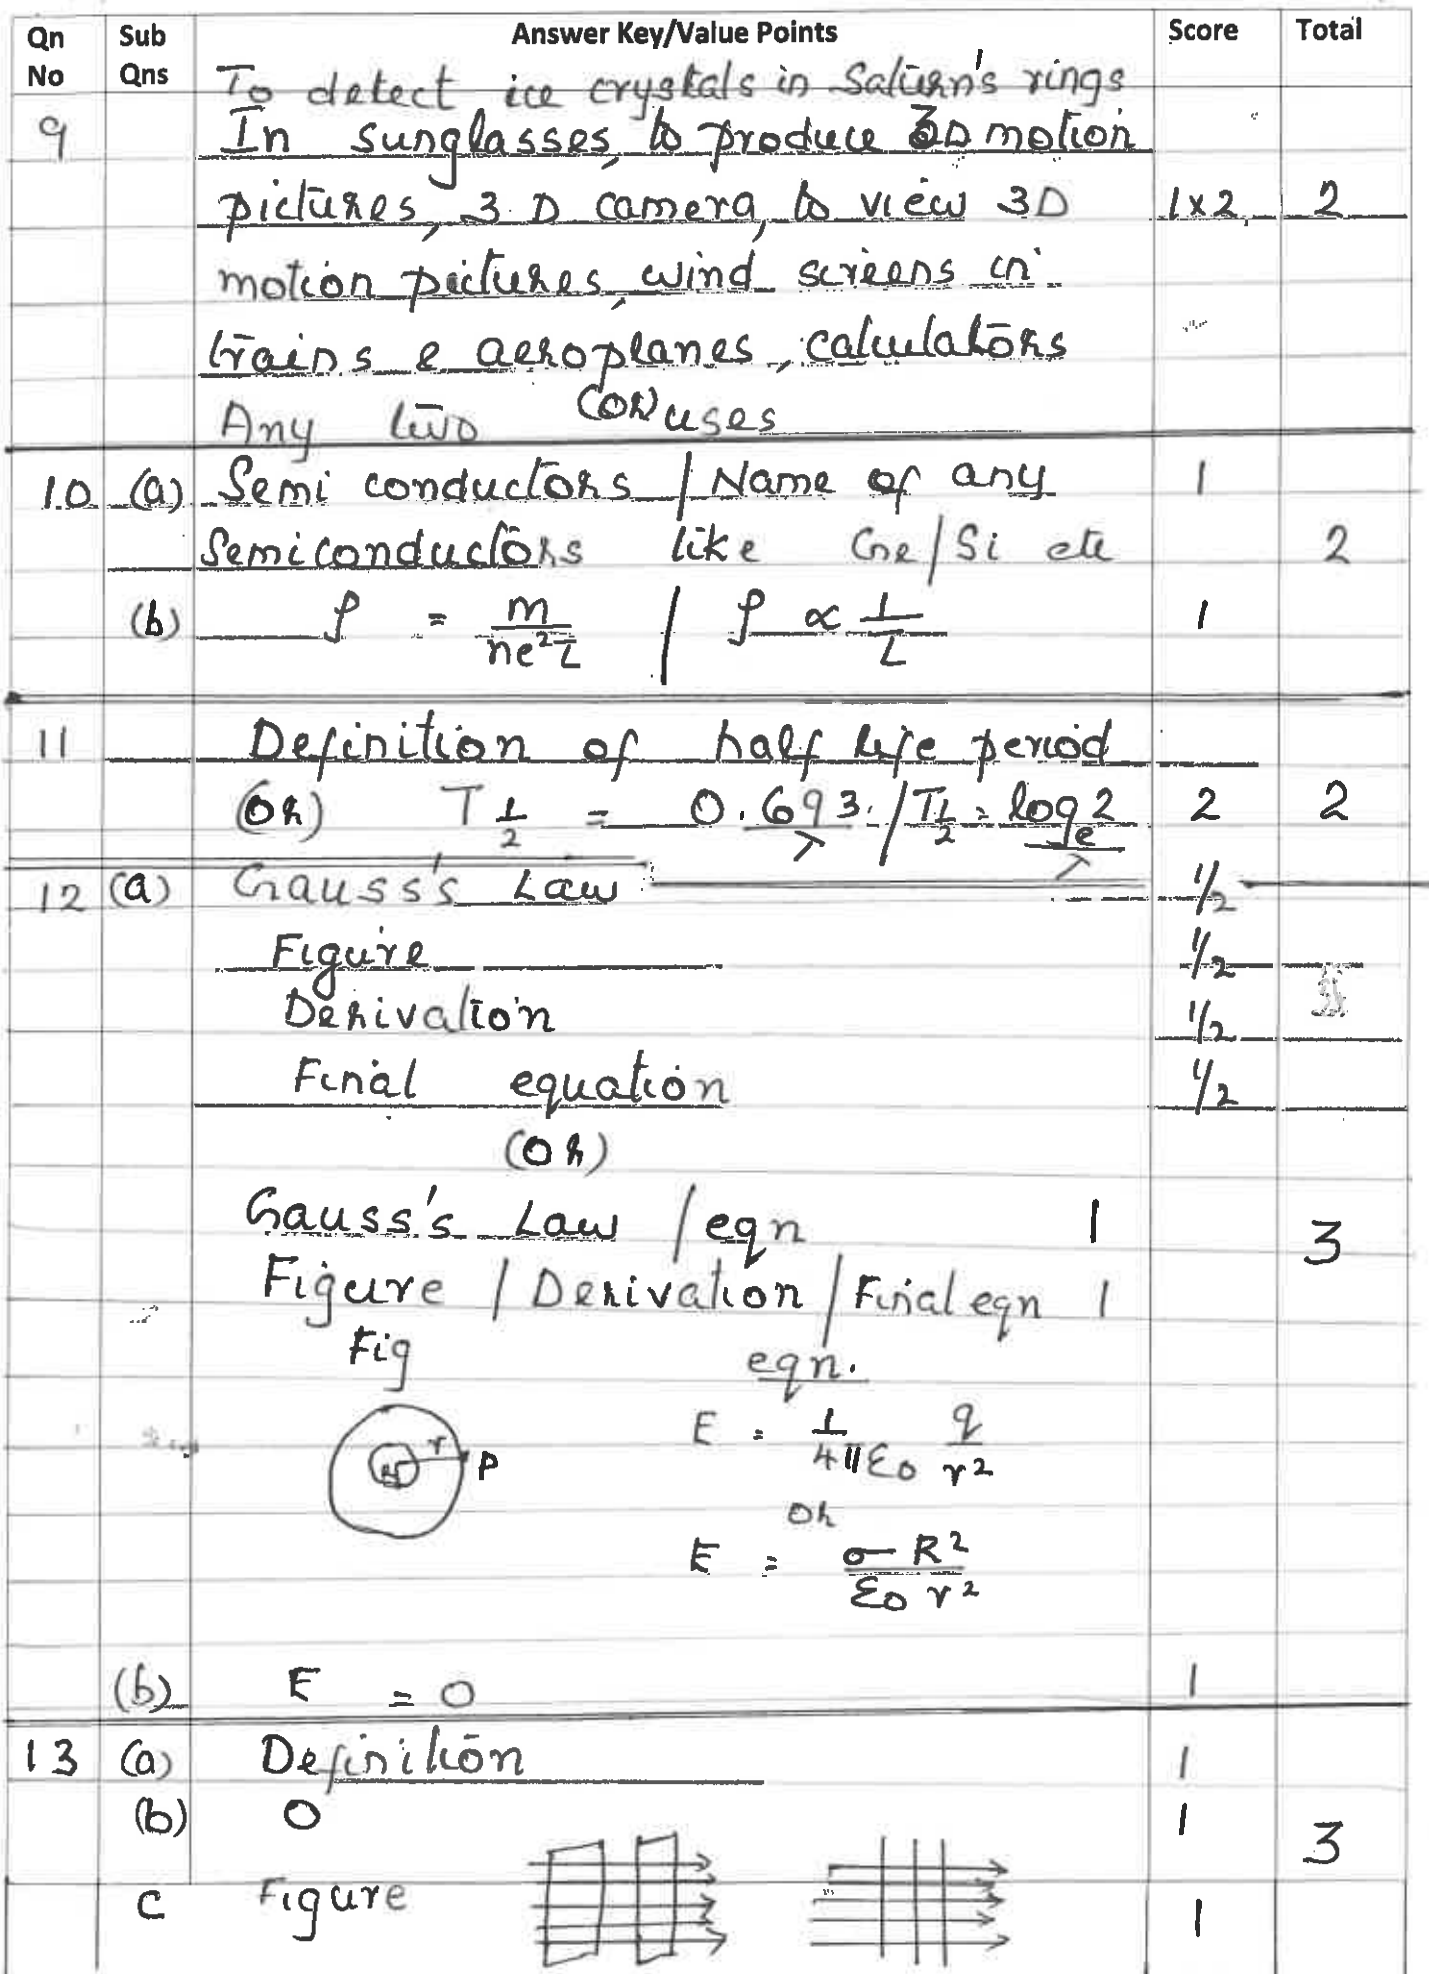 Qn No Sub Qns Answer Key/Value Points Score Total
To detect ice crystals in Saturn's rings
9 In sunglasses, to produce 3D motion
pictures, 3 D camera, to view 3D 1x2 2
motion pictures, wind screens in
trains & aeroplanes, calculators
Any two uses
10 (a) Semi conductors / Name of any 1
Semiconductors like Ge/Si etc 2
(b) ρ = m/ne²τ / ρ ∝ 1/τ 1
11 Definition of half life period
(Or) T 1/2 = 0.693/λ / T 1/2 = logₑ2/λ 2 2
12 (a) Gauss's Law 1/2
Figure 1/2
Derivation 1/2
Final equation 1/2
(Or)
Gauss's Law / eqn 1 3
Figure / Derivation / Final eqn 1
Fig eqn.
r P E = 1/4πε₀ q/r²
Or
E = σR²/ε₀r²
(b) E = 0 1
13 (a) Definition 1
(b) 0 1 3
c Figure 1